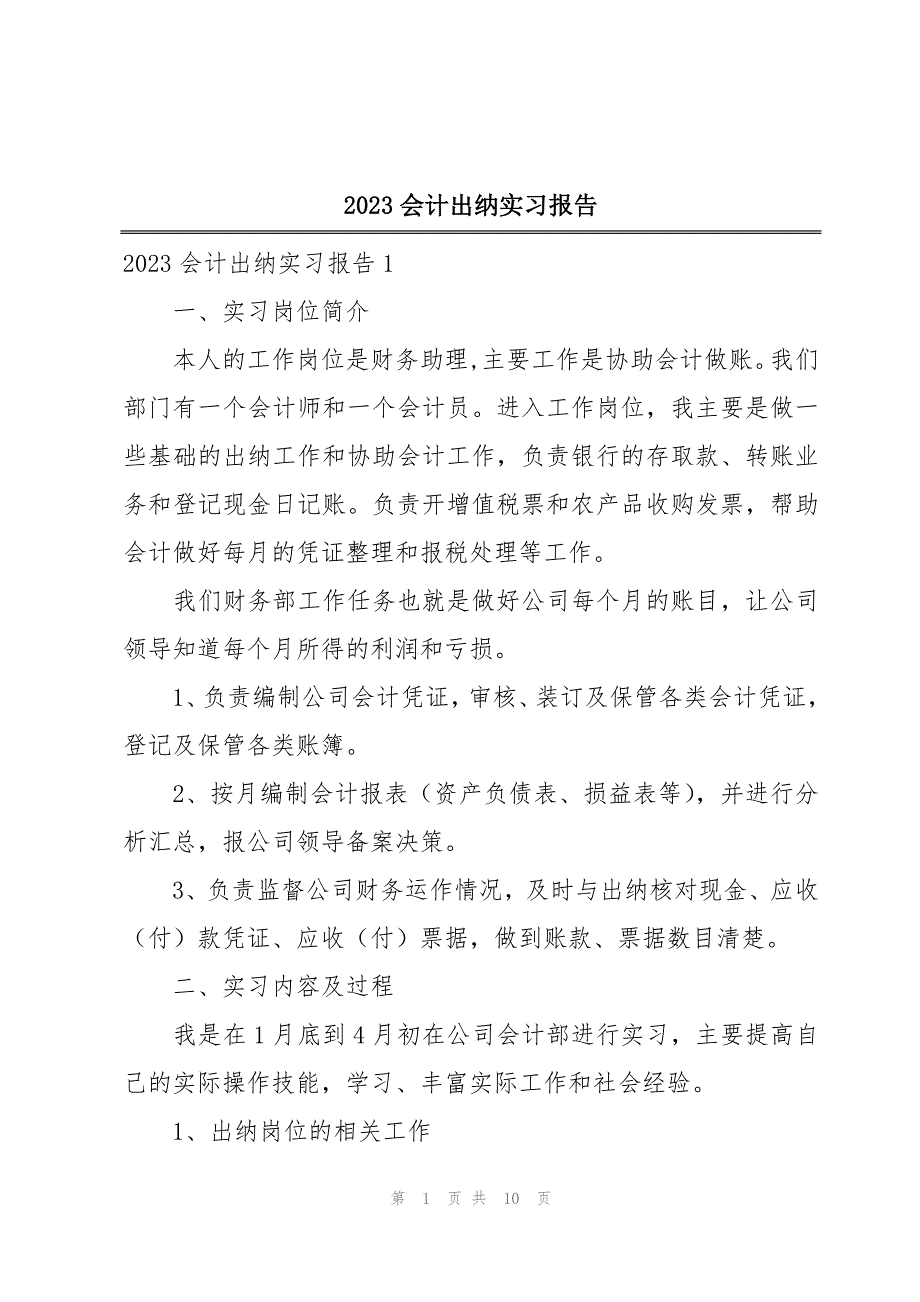 2023 会计出纳实习报告
2023 会计出纳实习报告 1
一、实习岗位简介
本人的工作岗位是财务助理,主要工作是协助会计做账。我们
部门有一个会计师和一个会计员。进入工作岗位，我主要是做一
些基础的出纳工作和协助会计工作，负责银行的存取款、转账业
务和登记现金日记账。负责开增值税票和农产品收购发票，帮助
会计做好每月的凭证整理和报税处理等工作。
我们财务部工作任务也就是做好公司每个月的账目，让公司
领导知道每个月所得的利润和亏损。
1、负责编制公司会计凭证，审核、装订及保管各类会计凭证，
登记及保管各类账簿。
2、按月编制会计报表（资产负债表、损益表等），并进行分
析汇总，报公司领导备案决策。
3、负责监督公司财务运作情况，及时与出纳核对现金、应收
（付）款凭证、应收（付）票据，做到账款、票据数目清楚。
二、实习内容及过程
我是在 1 月底到 4 月初在公司会计部进行实习，主要提高自
己的实际操作技能，学习、丰富实际工作和社会经验。
1、出纳岗位的相关工作
第 1 页 共 10 页